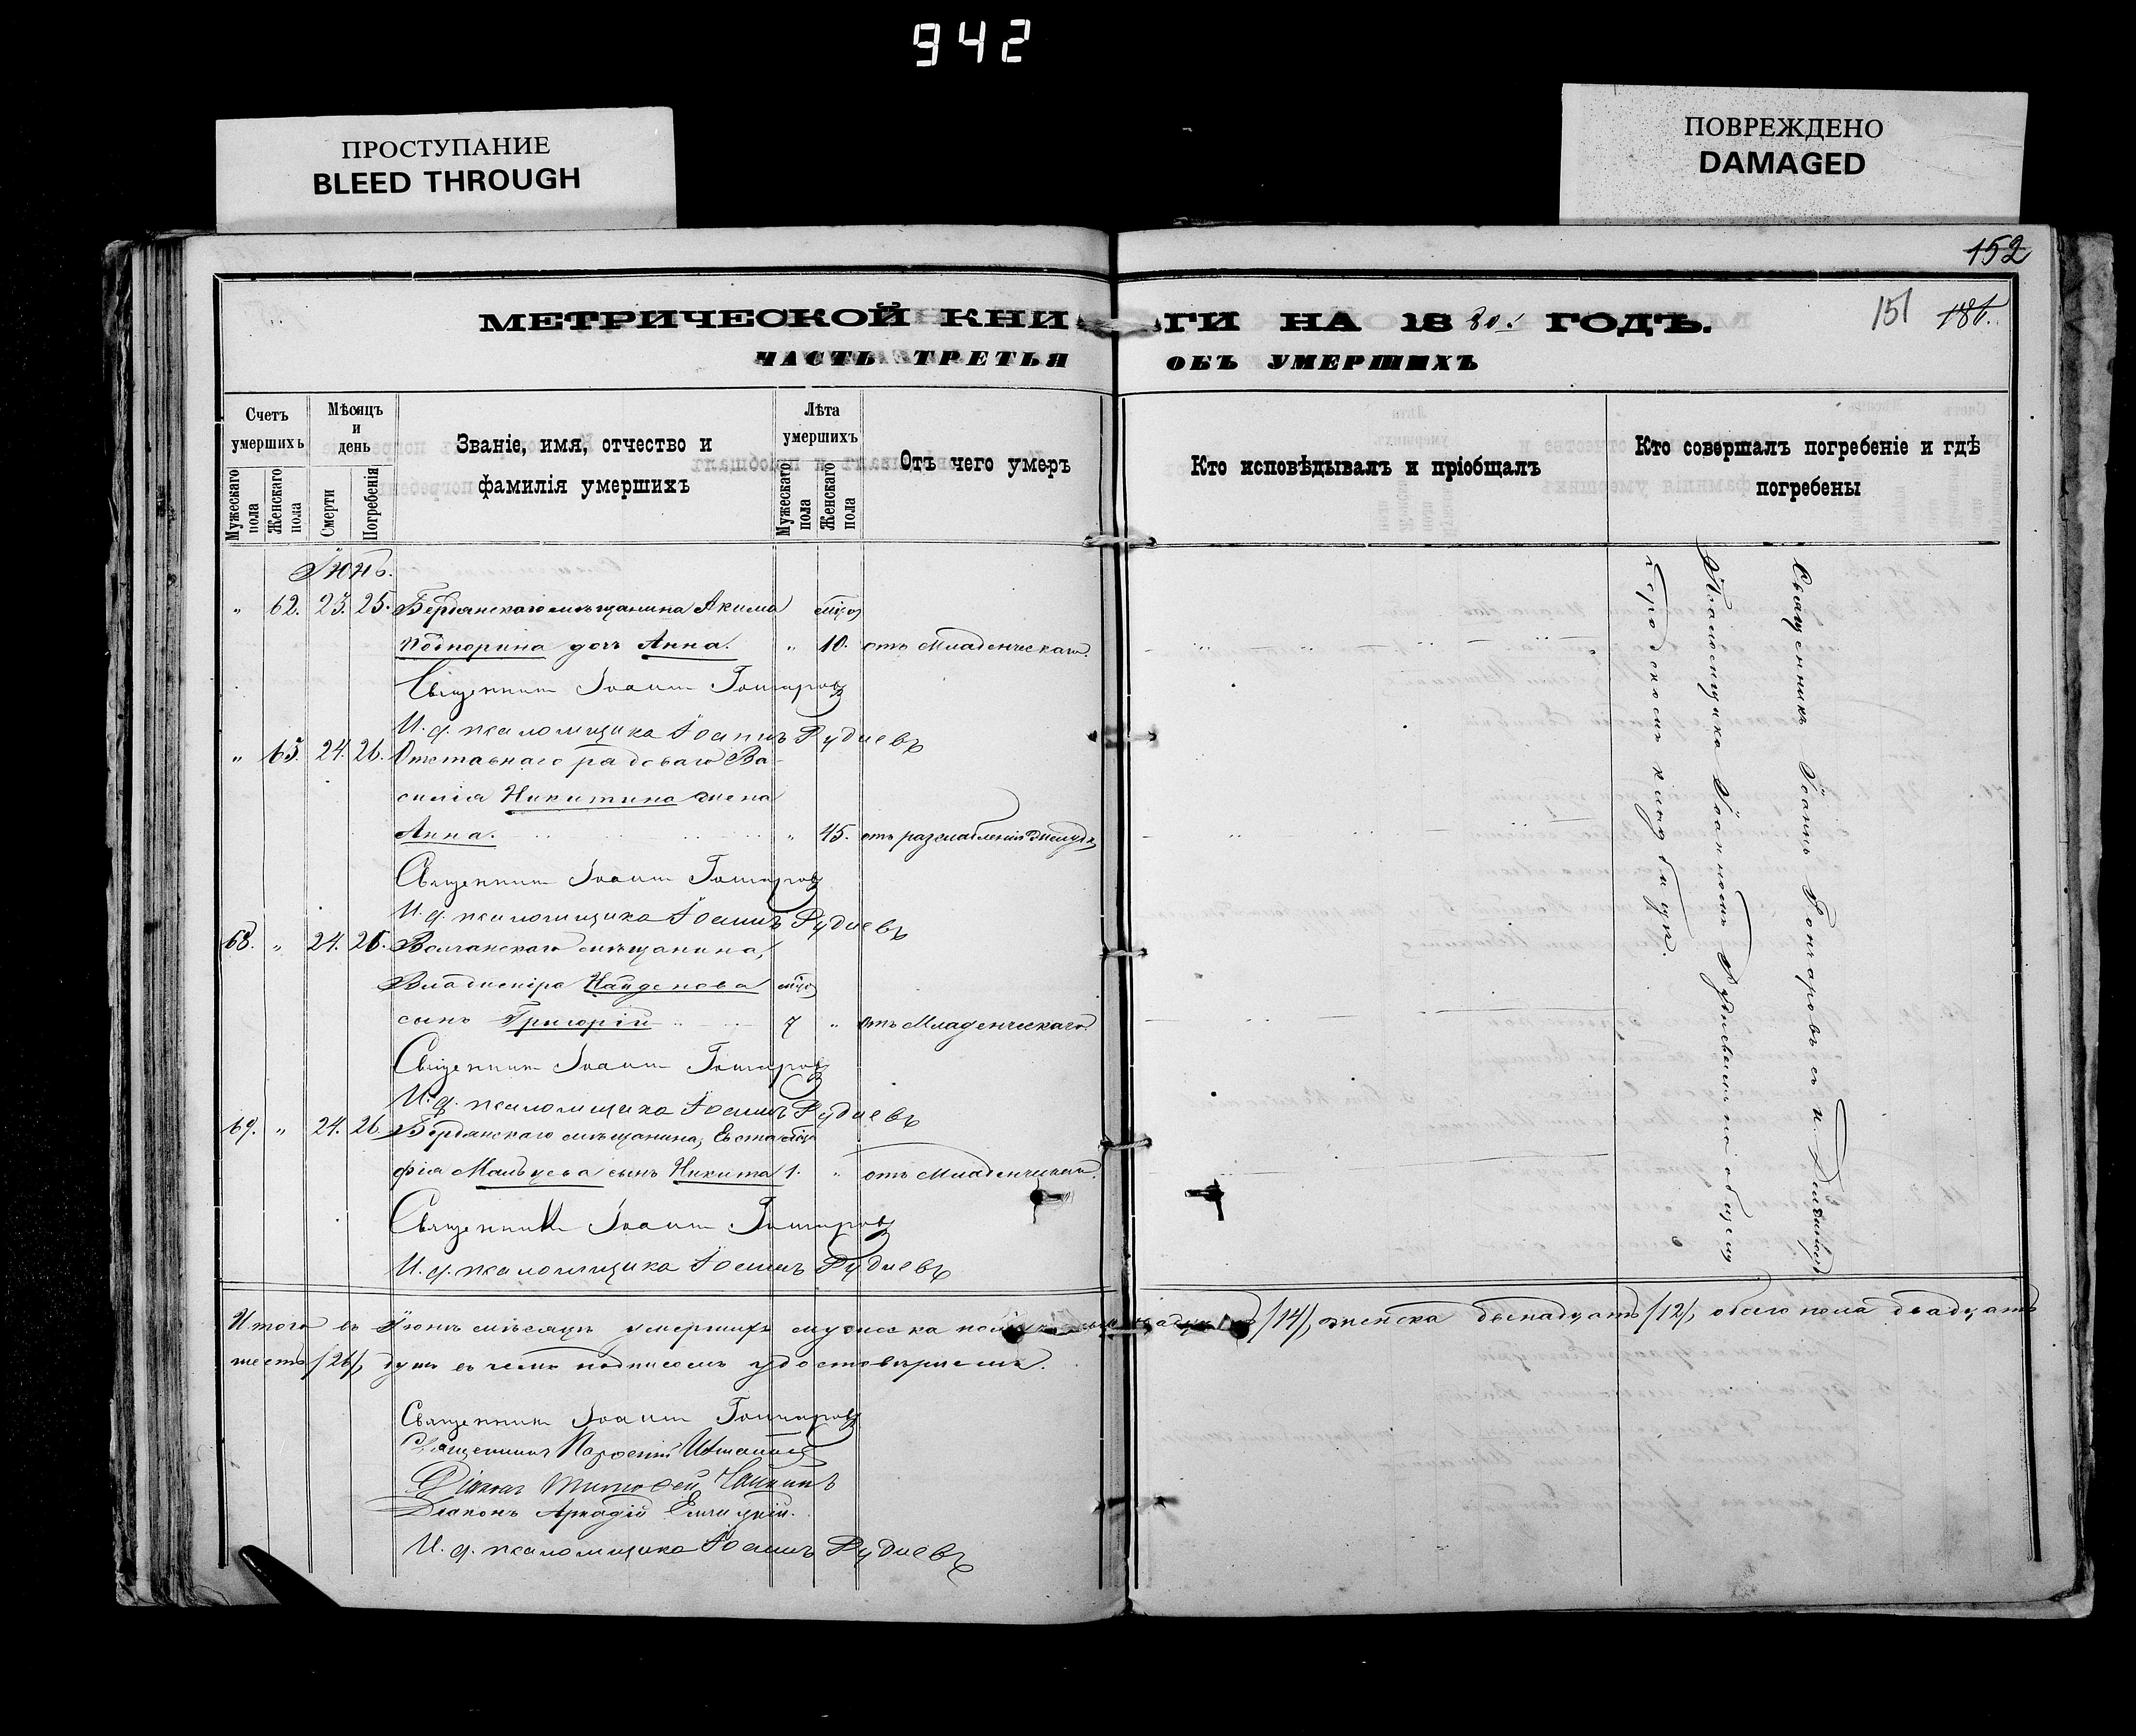 942
ПРОСТУПАНИЕ
BLEED THROUGH
ПОВРЕЖДЕНО
DAMAGED
152
151 181.
МЕТРИЧЕСКОЙ КНИГИ НА 1880. ГОДЪ.
ЧАСТЬ ТРЕТЬЯ ОБЪ УМЕРШИХЪ
Счетъ умершихъ
Мужескаго пола
Женскаго пола
Мѣсяцъ и день
Смерти
Погребенія
Званіе, имя, отчество и фамилія умершихъ
Лѣта умершихъ
Мужескаго пола
Женскаго пола
Отъ чего умеръ
Кто исповѣдывалъ и пріобщалъ
Кто совершалъ погребеніе и гдѣ погребены
Іюнь.
" 62. 23. 25. Бердянскаго мѣщанина Акима мѣс.
Подпорина дочь Анна. " 10. отъ Младенческаго.
Священникъ Іоаннъ Гончаровъ
И. д. псаломщика Іоаннъ Рудневъ
" 63. 24. 26. Отставнаго рядоваго Ва-
силія Никитина жена
Анна. " 45. отъ разслабленія желудка
Священникъ Іоаннъ Гончаровъ
И. д. псаломщика Іоаннъ Рудневъ
68. " 24. 26. Волчанскаго мѣщанина,
Владиміра Найденова мѣс.
сынъ Григорій 7 " отъ Младенческаго.
Священникъ Іоаннъ Гончаровъ
И. д. псаломщика Іоаннъ Рудневъ
69. " 24. 26. Бердянскаго мѣщанина, Евста мѣс.
фія Мальцева сынъ Никита 1. " отъ Младенческаго.
Священникъ Іоаннъ Гончаровъ
И. д. псаломщика Іоаннъ Рудневъ
Священникъ Іоаннъ Гончаровъ с и. д.
Псаломщика Іоанномъ Рудневымъ на общемъ
городскомъ кладбищѣ.
Итого въ Іюнѣ мѣсяцѣ умершихъ мужеска пола /14/, женска двенадцать /12/, обоего пола двадцать
шесть /26/, душъ въ чемъ подписомъ удостовѣряемъ.
Священникъ Іоаннъ Гончаровъ
Священникъ Парѳеній
Діаконъ Тимоѳей
Діаконъ Аркадій
И. д. псаломщика Іоаннъ Рудневъ